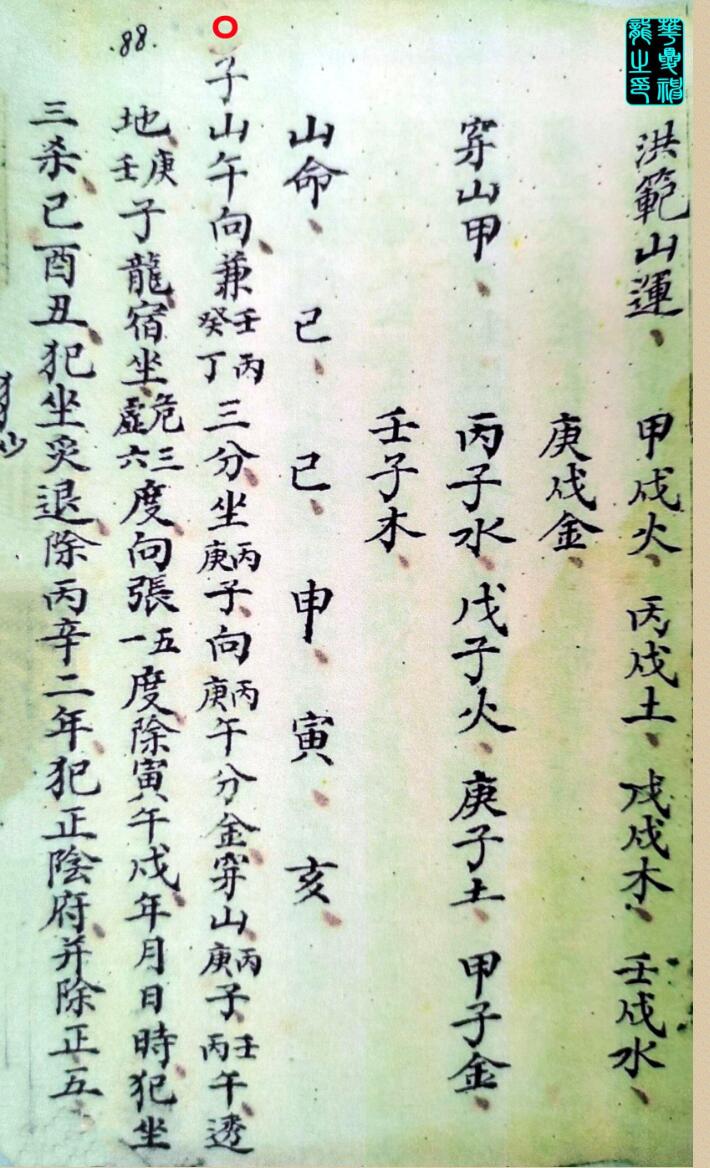 洪範山運、甲戌火、丙戌土、戊戌木、壬戌水、
庚戌金、
穿山甲、丙子水、戊子火、庚子土、甲子金、
壬子木、
山命、已、已、申、寅、亥、
子山午向、兼壬丙癸丁三分坐丙庚子、向丙庚午分金、穿山丙庚子、壬丙午透
地、庚壬子龍宿坐、危三虛六度、向張五一度除寅午戌、年月日時、犯坐
三杀、已酉丑、犯坐災退、除丙辛二年、犯正陰府、并除正五、
88.